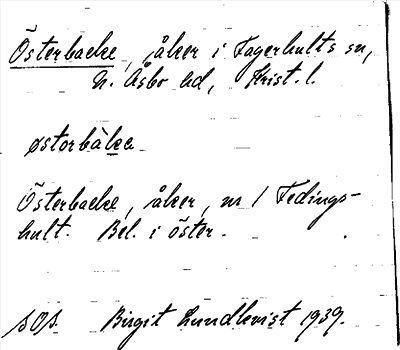 Österbacke, åker i Fagerhults sn,
N. Åsbo hd, Krist. l.
østorbàkα
Österbacke, åker, nr 1 Fedings-
hult. Bel. i öster.
SOS. Birgit Lundkvist 1939.